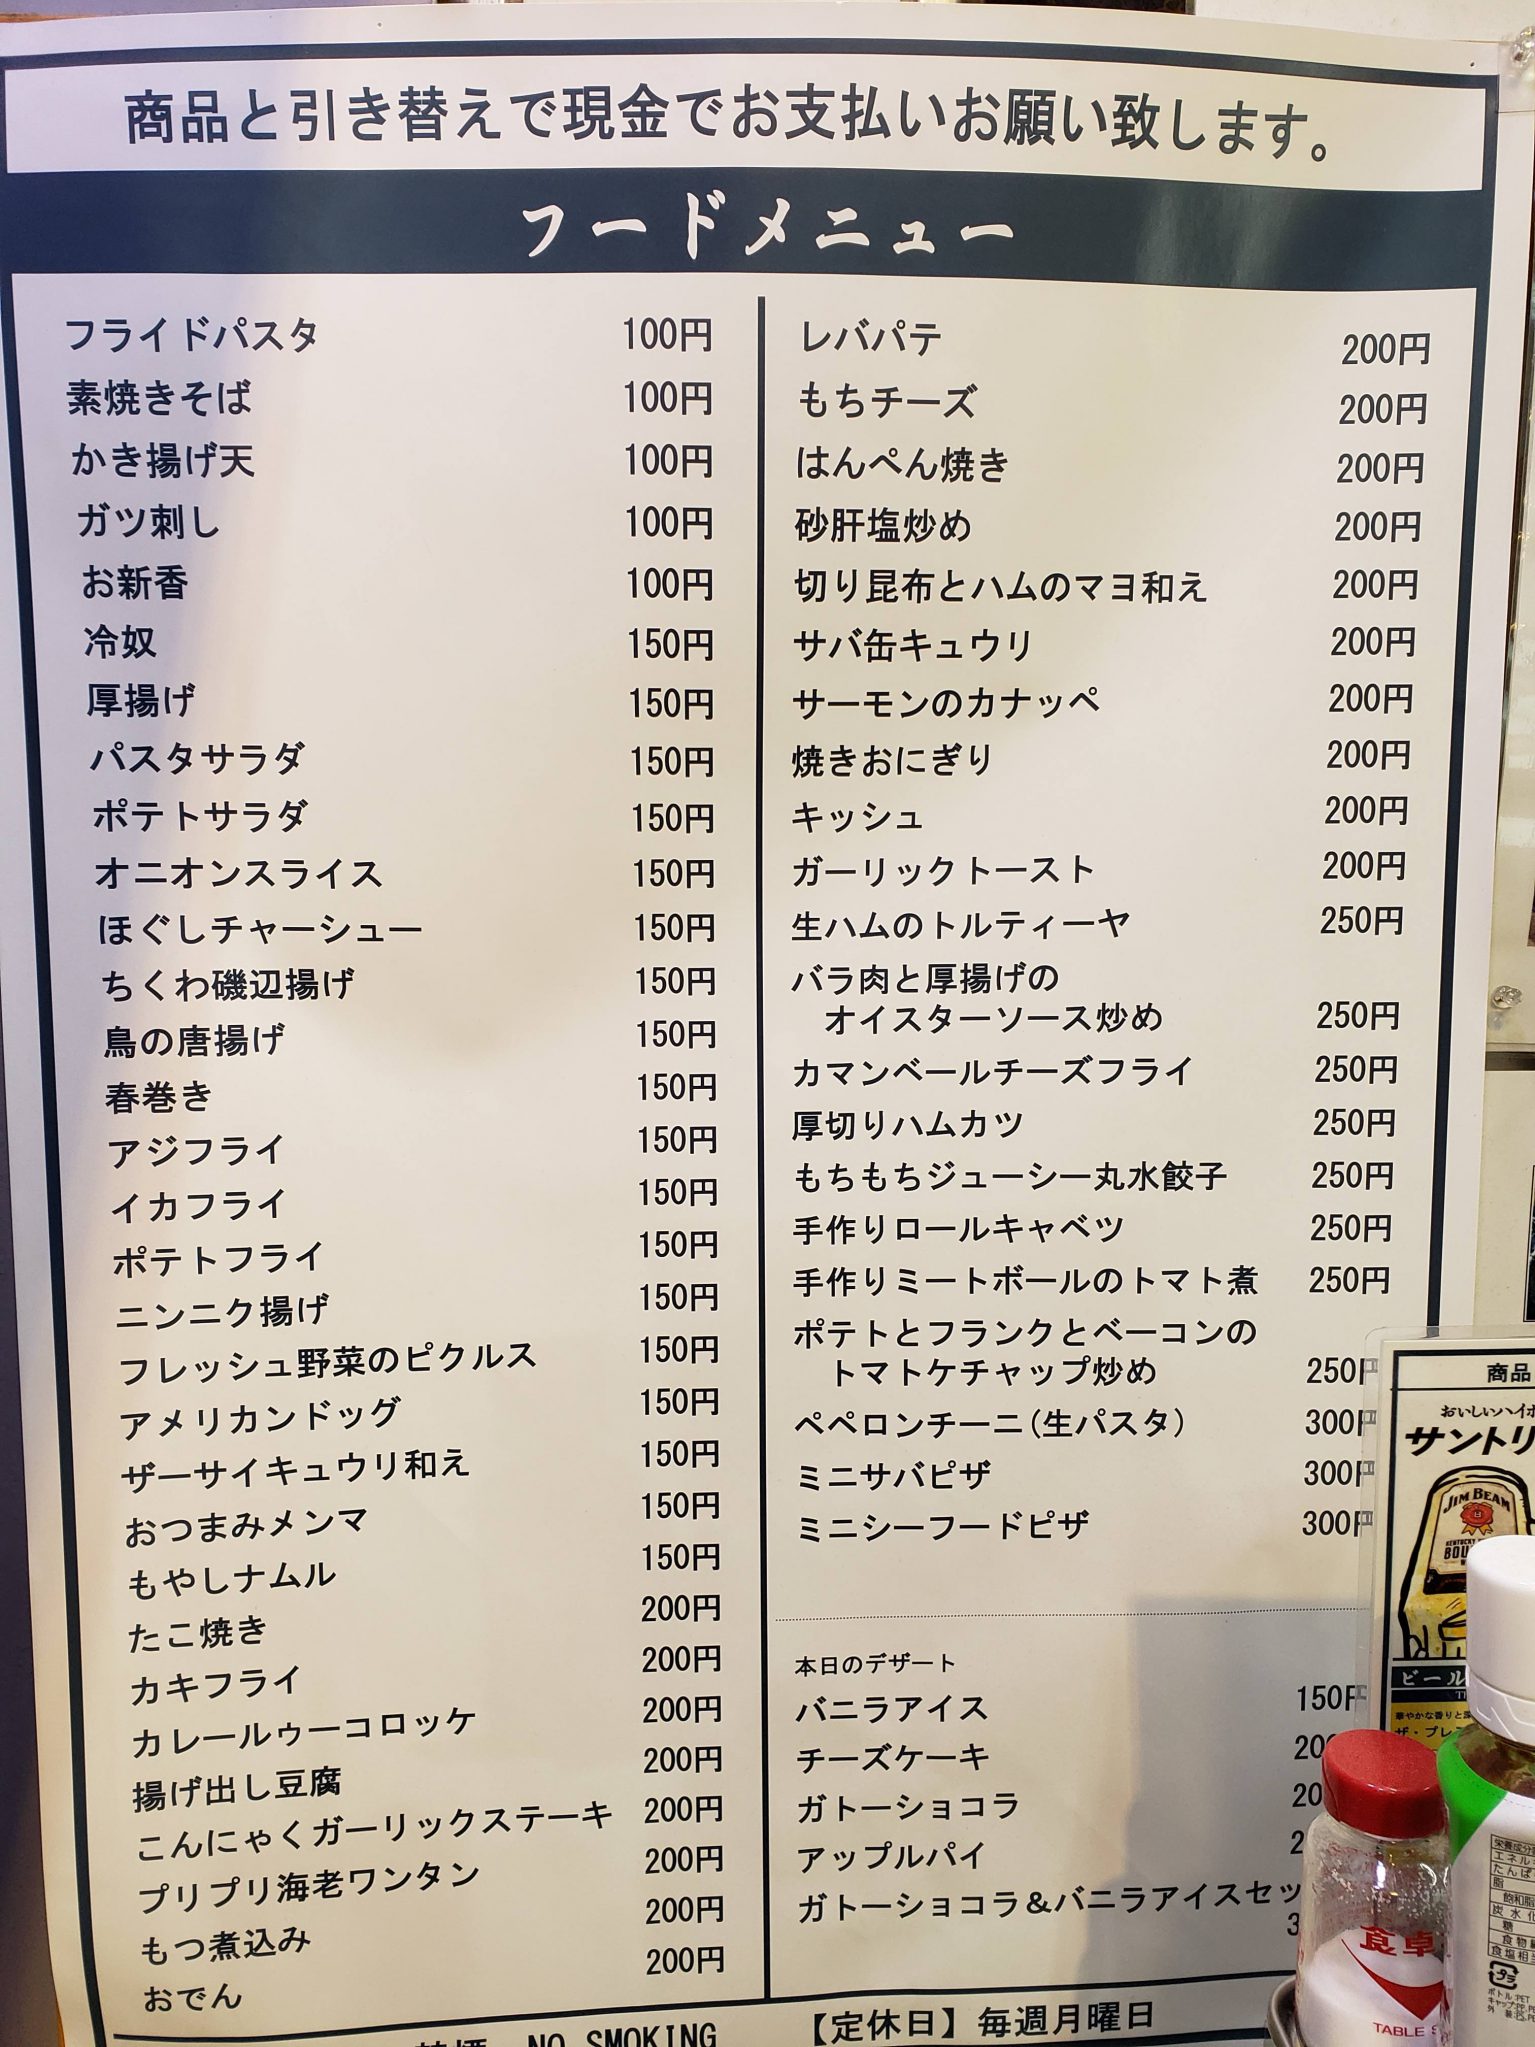 商品と引き替えで現金でお支払いお願い致します。
フードメニュー
フライドパスタ 100円
素焼きそば 100円
かき揚げ天 100円
ガツ刺し 100円
お新香 100円
冷奴 150円
厚揚げ 150円
パスタサラダ 150円
ポテトサラダ 150円
オニオンスライス 150円
ほぐしチャーシュー 150円
ちくわ磯辺揚げ 150円
鳥の唐揚げ 150円
春巻き 150円
アジフライ 150円
イカフライ 150円
ポテトフライ 150円
ニンニク揚げ 150円
フレッシュ野菜のピクルス 150円
アメリカンドッグ 150円
ザーサイキュウリ和え 150円
おつまみメンマ 150円
もやしナムル 150円
たこ焼き 200円
カキフライ 200円
カレールゥーコロッケ 200円
揚げ出し豆腐 200円
こんにゃくガーリックステーキ 200円
プリプリ海老ワンタン 200円
もつ煮込み 200円
おでん 200円
レバパテ 200円
もちチーズ 200円
はんぺん焼き 200円
砂肝塩炒め 200円
切り昆布とハムのマヨ和え 200円
サバ缶キュウリ 200円
サーモンのカナッペ 200円
焼きおにぎり 200円
キッシュ 200円
ガーリックトースト 200円
生ハムのトルティーヤ 250円
バラ肉と厚揚げの
オイスターソース炒め 250円
カマンベールチーズフライ 250円
厚切りハムカツ 250円
もちもちジューシー丸水餃子 250円
手作りロールキャベツ 250円
手作りミートボールのトマト煮 250円
ポテトとフランクとベーコンの
トマトケチャップ炒め 250円
ペペロンチーニ(生パスタ) 300円
ミニサバピザ 300円
ミニシーフードピザ 300円
本日のデザート
バニラアイス 150円
チーズケーキ 20
ガトーショコラ 20
アップルパイ 2
ガトーショコラ&バニラアイスセッ
3
NO SMOKING
【定休日】毎週月曜日
商品
おいしいハイボ
サントリ
JIM BEAM
ビール
食卓
TABLE S